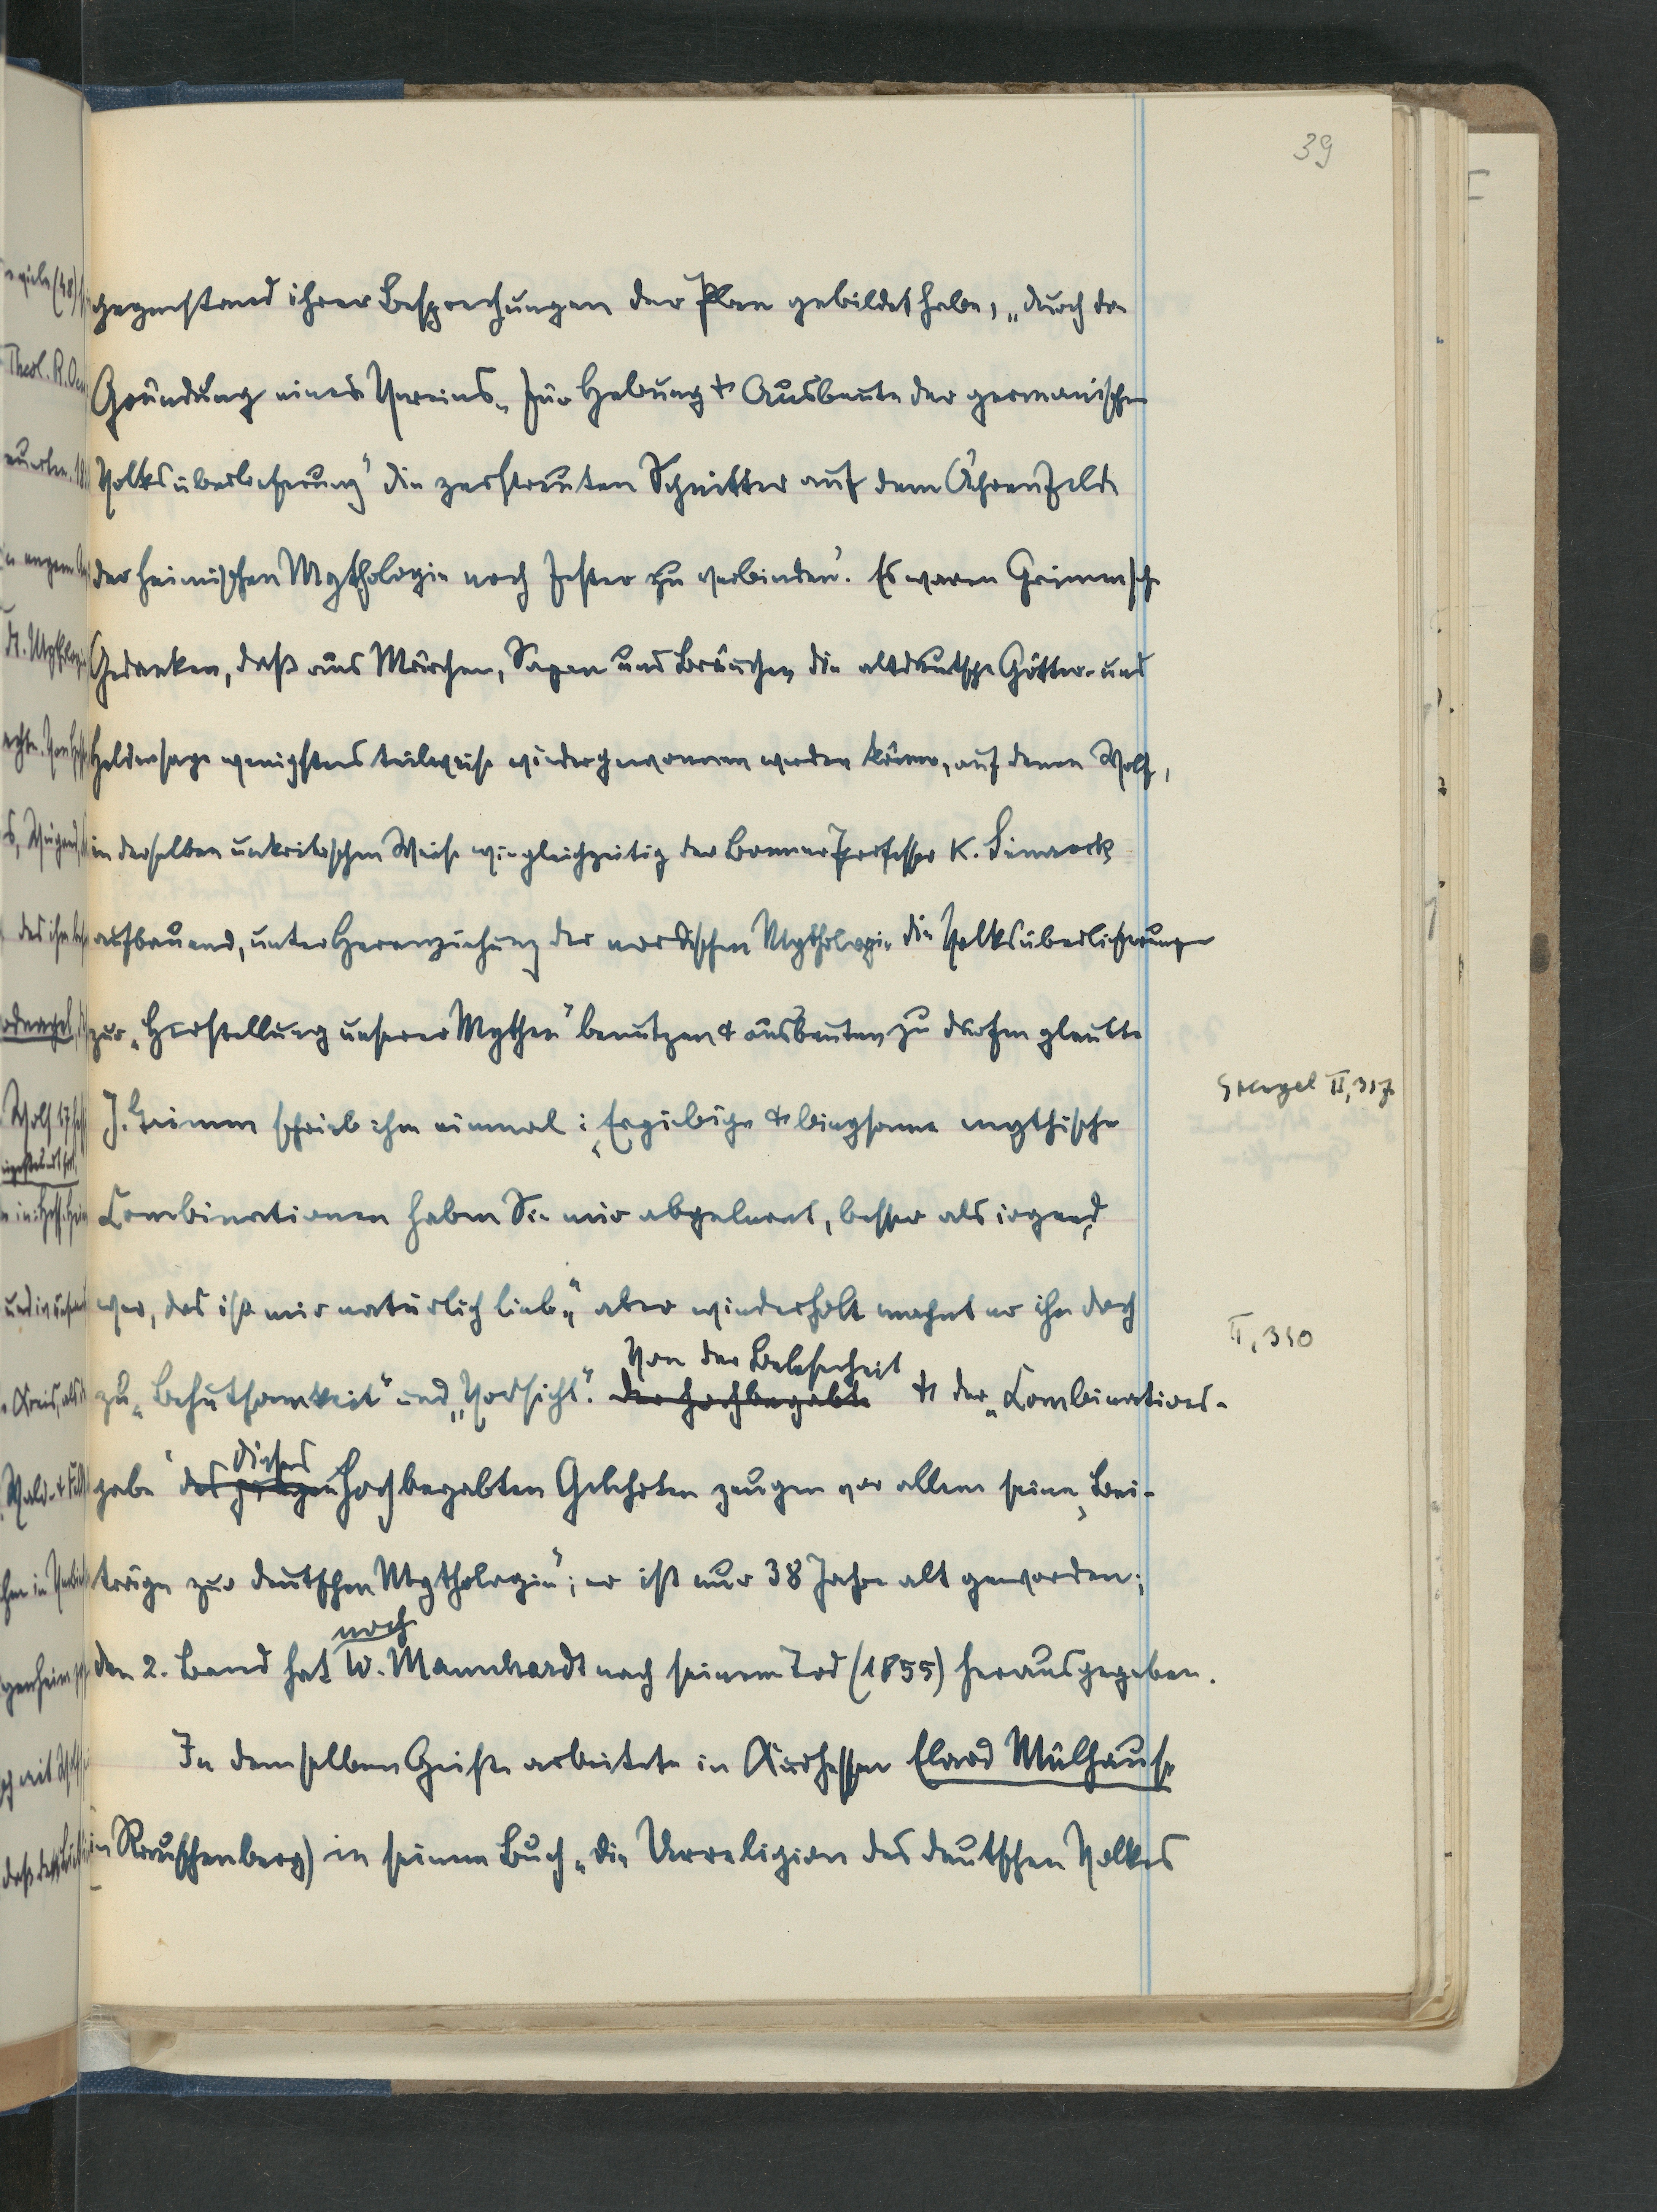 39
gegenstand ihrer Besprechungen der Plan gebildet habe, „durch die
Gründung eines Vereins „für Hebung & Ausbeute der germanischen
Volksüberlieferung“ die zerstreuten Schnitter auf dem Ährenfelde
der heimischen Mythologie noch fester zu verbinden“. Es waren Grimmsche
Gedanken, daß aus Märchen, Sagen und Bräuchen die altdeutsche Götter- und
Heldensage wenigstens teilweise wiedergewonnen werden könne, auf denen Wolf,
in derselben unkritischen Weise wie gleichzeitig der Bonner Professor K. Simrock
aufbauend, unter Heranziehung der nordischen Mythologie die Volksüberlieferungen
zur „Herstellung unserer Mythen“ benutzen & ausbeuten zu dürfen glaubte
J. Grimm schrieb ihm einmal: „Ergiebige & biegsame mythische
Stengel II, 317.
Combinationen haben Sie mir abgelernt, besser als irgend
wer, das ist mir natürlich lieb“, aber wiederholt mahnt er ihn doch
II, 350
zu „Behutsamkeit“ und „Vorsicht“. der hochbegabte Von der Belesenheit & der „Combinations-
gabe“ des jungen dieses hochbegabten Gelehrten zeugen vor allem seine „Bei-
träge zur deutschen Mythologie“; er ist nur 38 Jahre alt geworden;
den 2. Band hat noch W. Mannhardt nach seinem Tod (1855) herausgegeben.
In demselben Geiste arbeitete in Kurhessen Elard Mülhause
(in Rauschenberg) in seinem Buch „die Urreligion des deutschen Volkes